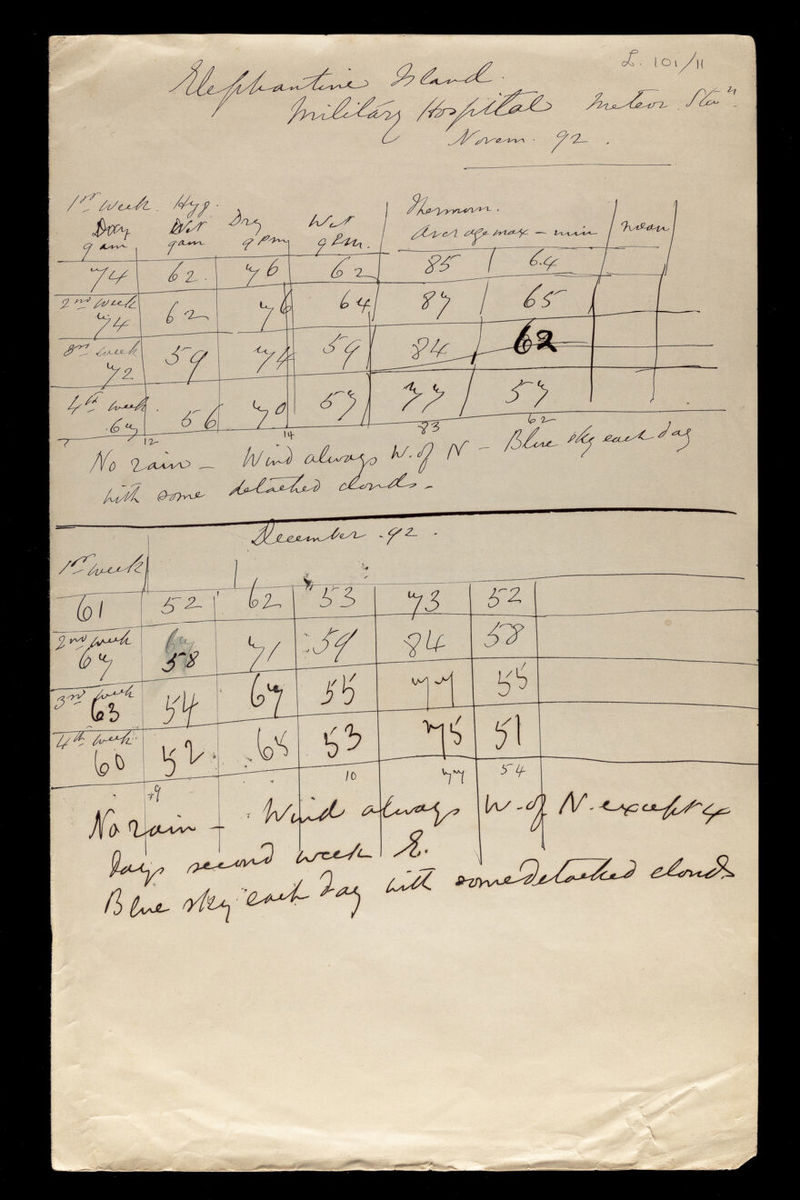 L. 101/11
Elephantine Island.
Military Hospital Meteor. Stan.
Novem. 92.
1st Week. Hyg. Thermom.
Dry Wet Dry Wet Average max - min mean
9 am 9 am 9 pm 9 Pm.
74 62. 76 62 85 64
2nd week
74 62 76 64 87 65
3rd week
72 59 74 59 84 62
4th week.
67 56 70 57 77 57
12 14 83 62
No rain - Wind always W. of N - Blue sky each day
with some detached clouds -
December. 92.
1st week
61 52 62 53 73 52
2nd week
67 58 71 59 84 58
3rd week
63 54 67 55 77 55
4th week
60 52 65 53 75 51
9 10 77 54
No rain - Wind always W. of N. except 4
days second week E.
Blue sky each day with some detached clouds